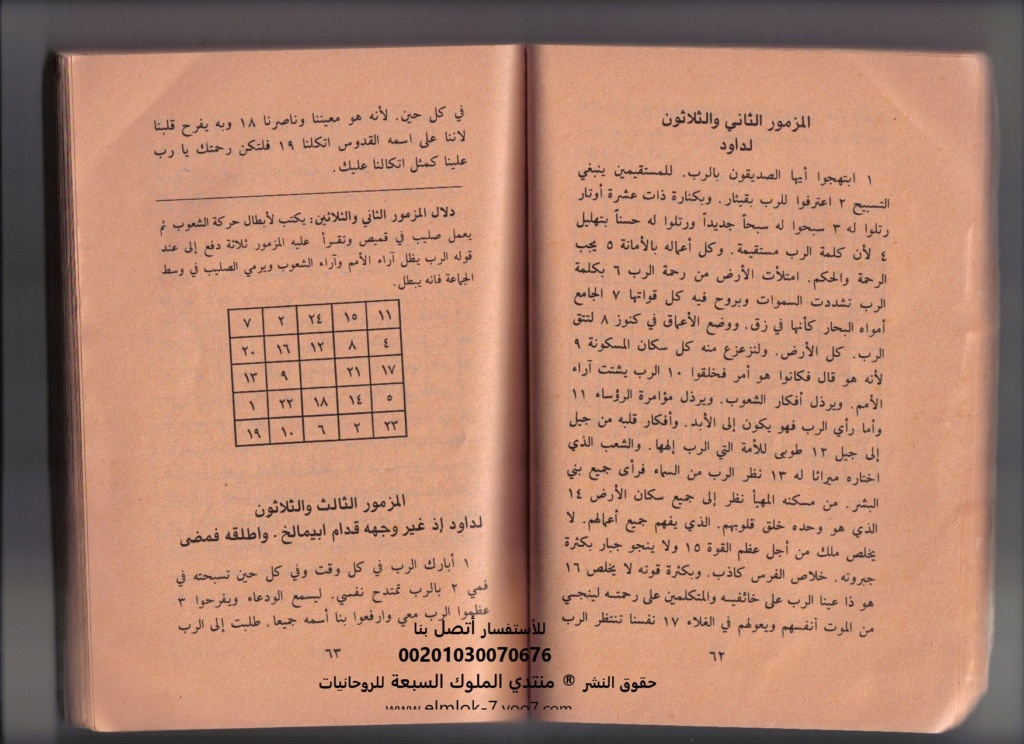 المزمور الثاني والثلاثون
لداود
١ ابتهجوا أيها الصديقون بالرب. للمستقيمين ينبغي
التسبيح ٢ اعترفوا للرب بقيثار. وبكنارة ذات عشرة أوتار
رتلوا له ٣ سبحوا له سبحاً جديداً ورتلوا له حسناً بتهليل
٤ لأن كلمة الرب مستقيمة. وكل أعماله بالأمانة ٥ يحب
الرحمة والحكم. امتلأت الأرض من رحمة الرب ٦ بكلمة
الرب تشددت السموات وبروح فيه كل قواتها ٧ الجامع
أمواه البحار كأنها في زق. ووضع الأعماق في كنوز ٨ لتتق
الرب. كل الأرض. ولنزعزع منه كل سكان المسكونة ٩
لأنه هو قال فكانوا هو أمر فخلقوا ١٠ الرب يشتت آراء
الأمم. ويرذل أفكار الشعوب. ويرذل مؤامرة الرؤساء ١١
وأما رأي الرب فهو يكون إلى الأبد. وأفكار قلبه من جيل
إلى جيل ١٢ طوبى للأمة التي الرب إلهها. والشعب الذي
اختاره ميراثا له ١٣ نظر الرب من السماء فرأى جميع بني
البشر. من مسكنه المهيأ نظر إلى جميع سكان الأرض ١٤
الذي هو وحده خلق قلوبهم. الذي يفهم جميع أعمالهم. لا
يخلص ملك من أجل عظم القوة ١٥ ولا ينجو جبار بكثرة
جبروته. خلاص الفرس كاذب. وبكثرة قوته لا يخلص ١٦
هو ذا عينا الرب على خائفيه والمتكلمين على رحمته لينجي
من الموت أنفسهم ويعولهم في الغلاء ١٧ نفسنا تنتظر الرب
٦٢
في كل حين. لأنه هو معيننا وناصرنا ١٨ وبه يفرح قلبنا
لاننا على اسمه القدوس اتكلنا ١٩ فلتكن رحمتك يا رب
علينا كمثل اتكالنا عليك.
دلال المزمور الثاني والثلاثين: يكتب لأبطال حركة الشعوب ثم
يعمل صليب في قميص وتقرأ عليه المزمور ثلاثة دفع إلى عند
قوله الرب يفلل آراء الأمم وآراء الشعوب ويرمي الصليب في وسط
الجماعة فانه يبطل.
١١ ١٥ ٢٤ ٢ ٧
٤ ٨ ١٢ ١٦ ٢٠
١٧ ٢١ ٩ ١٣
٥ ١٤ ١٨ ٢٢ ١
٢٣ ٢ ٦ ١٠ ١٩
المزمور الثالث والثلاثون
لداود إذ غير وجهه قدام ابيمالخ. واطلقه فمضى
١ أبارك الرب في كل وقت وفي كل حين تسبحته في
فمي ٢ بالرب تمتدح نفسي. ليسمع الودعاء ويفرحوا ٣
عظموا الرب معي وارفعوا بنا أسمه جميعا. طلبت إلى الرب
٦٣
للأستفسار أتصل بنا
00201030070676
حقوق النشر ® منتدي الملوك السبعة للروحانيات
www.elmlok-7.yoo7.com